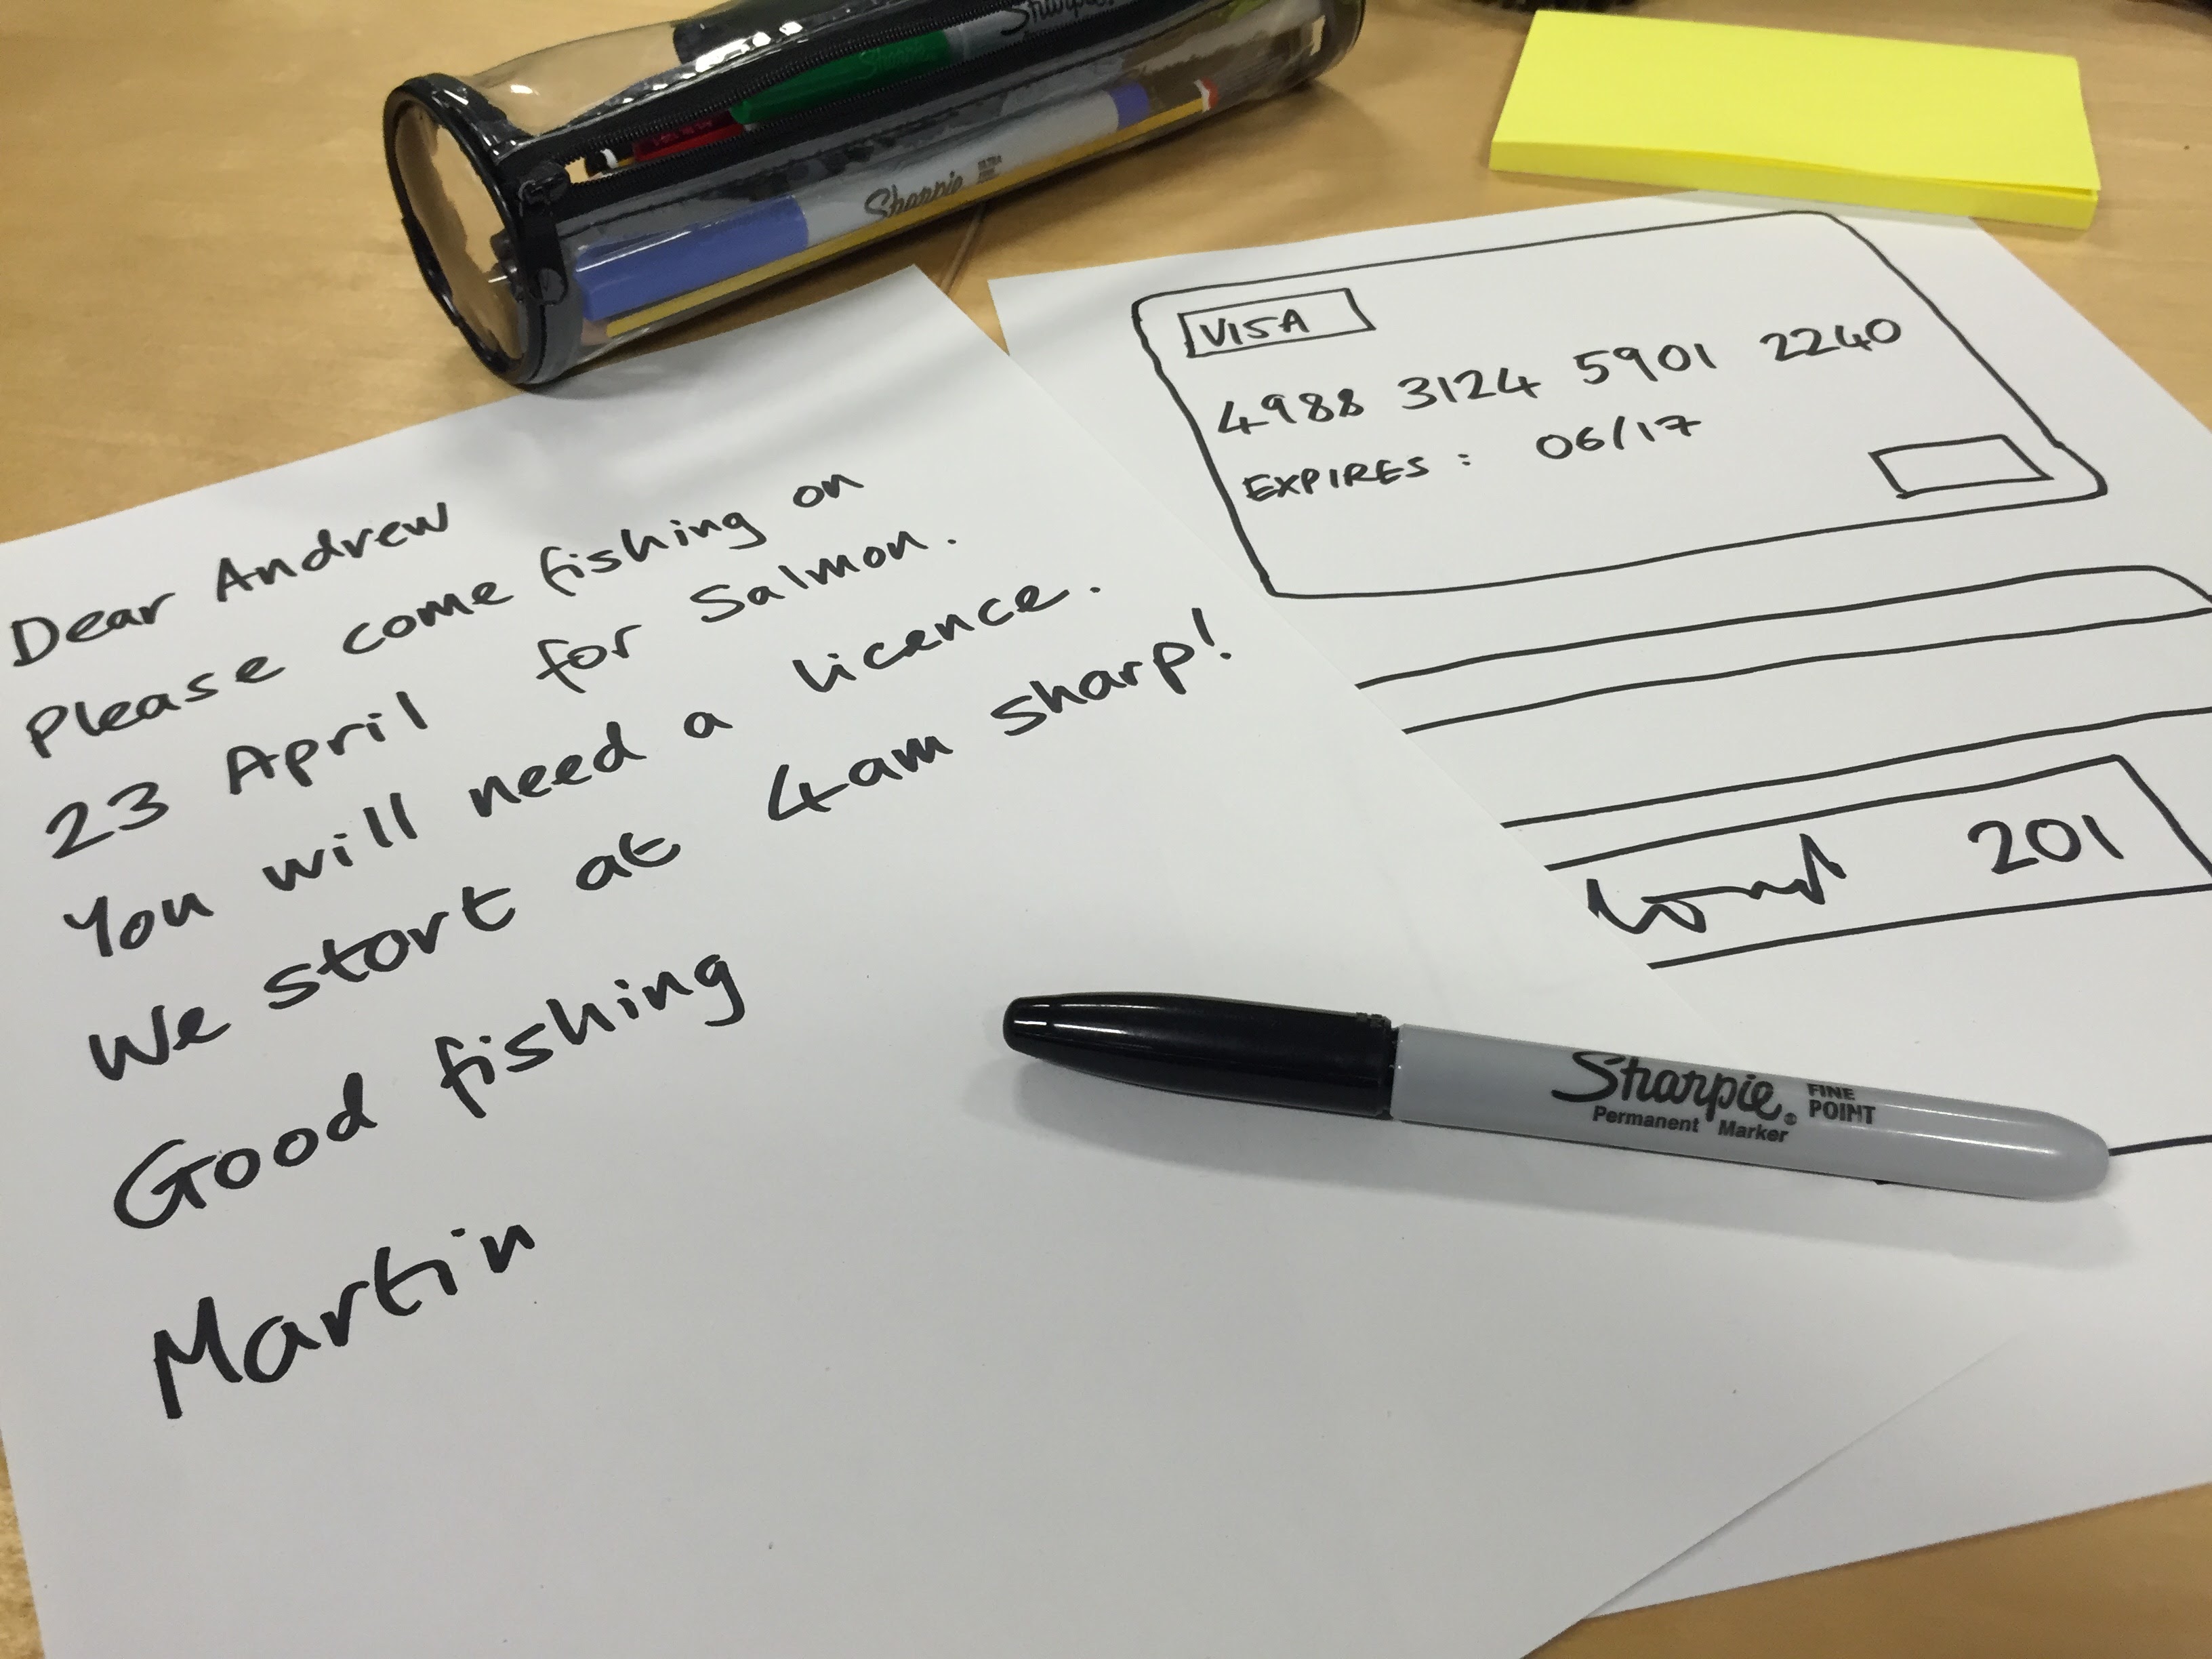 Sharpie
Sharpie
Sharpie
VISA
4988 3124 5901 2240
EXPIRES : 06/17
201
Dear Andrew
Please come fishing on
23 April for Salmon.
You will need a licence.
We start at 4am sharp!
Good fishing
Martin
Sharpie® FINE POINT
Permanent Marker